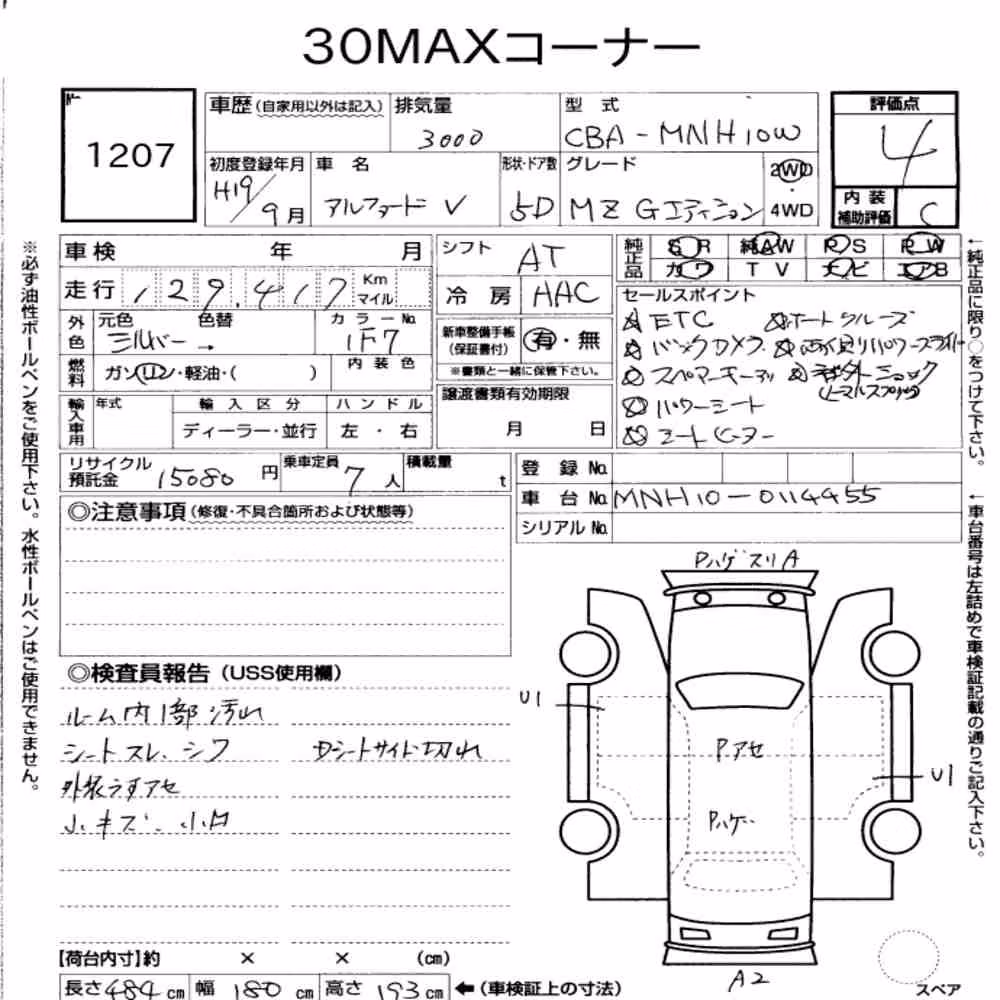 30MAXコーナー
1207
車歴(自家用以外は記入)
排気量
3000
型 式
CBA-MNH10W
評価点
4
内装
補助評価
C
初度登録年月
H19/9月
車 名
アルファード V
形状・ドア数
5D
グレード
MZ Gエディション
2WD
・
4WD
車検 年 月
走行 129,417 Km
マイル
外色
元色 色替
シルバー →
カラーNo.
1F7
燃料
ガソリン・軽油・( )
内 装 色
輸入車用
年式
輸 入 区 分
ディーラー・並行
ハ ン ド ル
左 ・ 右
シフト
AT
冷 房
AAC
新車整備手帳
(保証書付)
有・無
※書類と一緒に保管下さい。
譲渡書類有効期限
月 日
純正品
S R 純AW P S P W
カワ T V ナビ エアB
セールスポイント
☆ETC ☆オートクルーズ
☆バックカメラ ☆両側パワースライドドア
☆スペアキーアリ
☆パワーシート
☆シートヒーター
リサイクル
預託金
15080 円
乗車定員
7 人
積載量
t
登 録 No.
車 台 No.
MNH10-0114455
シリアル No.
◎注意事項(修復・不具合箇所および状態等)
◎検査員報告(USS使用欄)
ルーム内1部汚れ
シートスレ、シワ Dシートサイド切れ
外装うすアセ
小キズ、小凹
PハゲスリA
U1
Pアセ
U1
Pハゲ
A2
スペア
【荷台内寸】約 × × (cm)
長さ 484 cm 幅 180 cm 高さ 193 cm ←(車検証上の寸法)
※必ず油性ボールペンをご使用下さい。水性ボールペンはご使用できません。
←純正品に限り○をつけて下さい。
←車台番号は左詰めで車検証記載の通りご記入下さい。